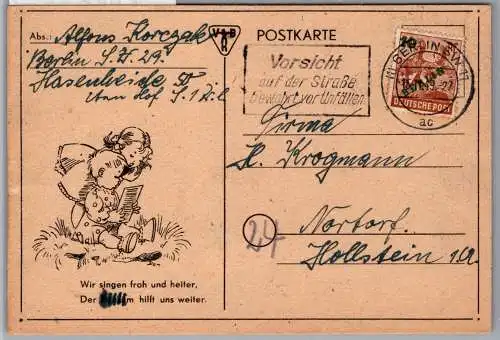 Abs.: Alfons Korczak
Berlin S.W. 29.
Hasenheide
POSTKARTE
Vorsicht
auf der Straße
bewahrt vor Unfällen
BERLIN SW 11
DEUTSCHE POST
ac
Firma
H. Krogmann
24
Nortorf.
Hollstein
Wir singen froh und heiter,
Der m hilft uns weiter.